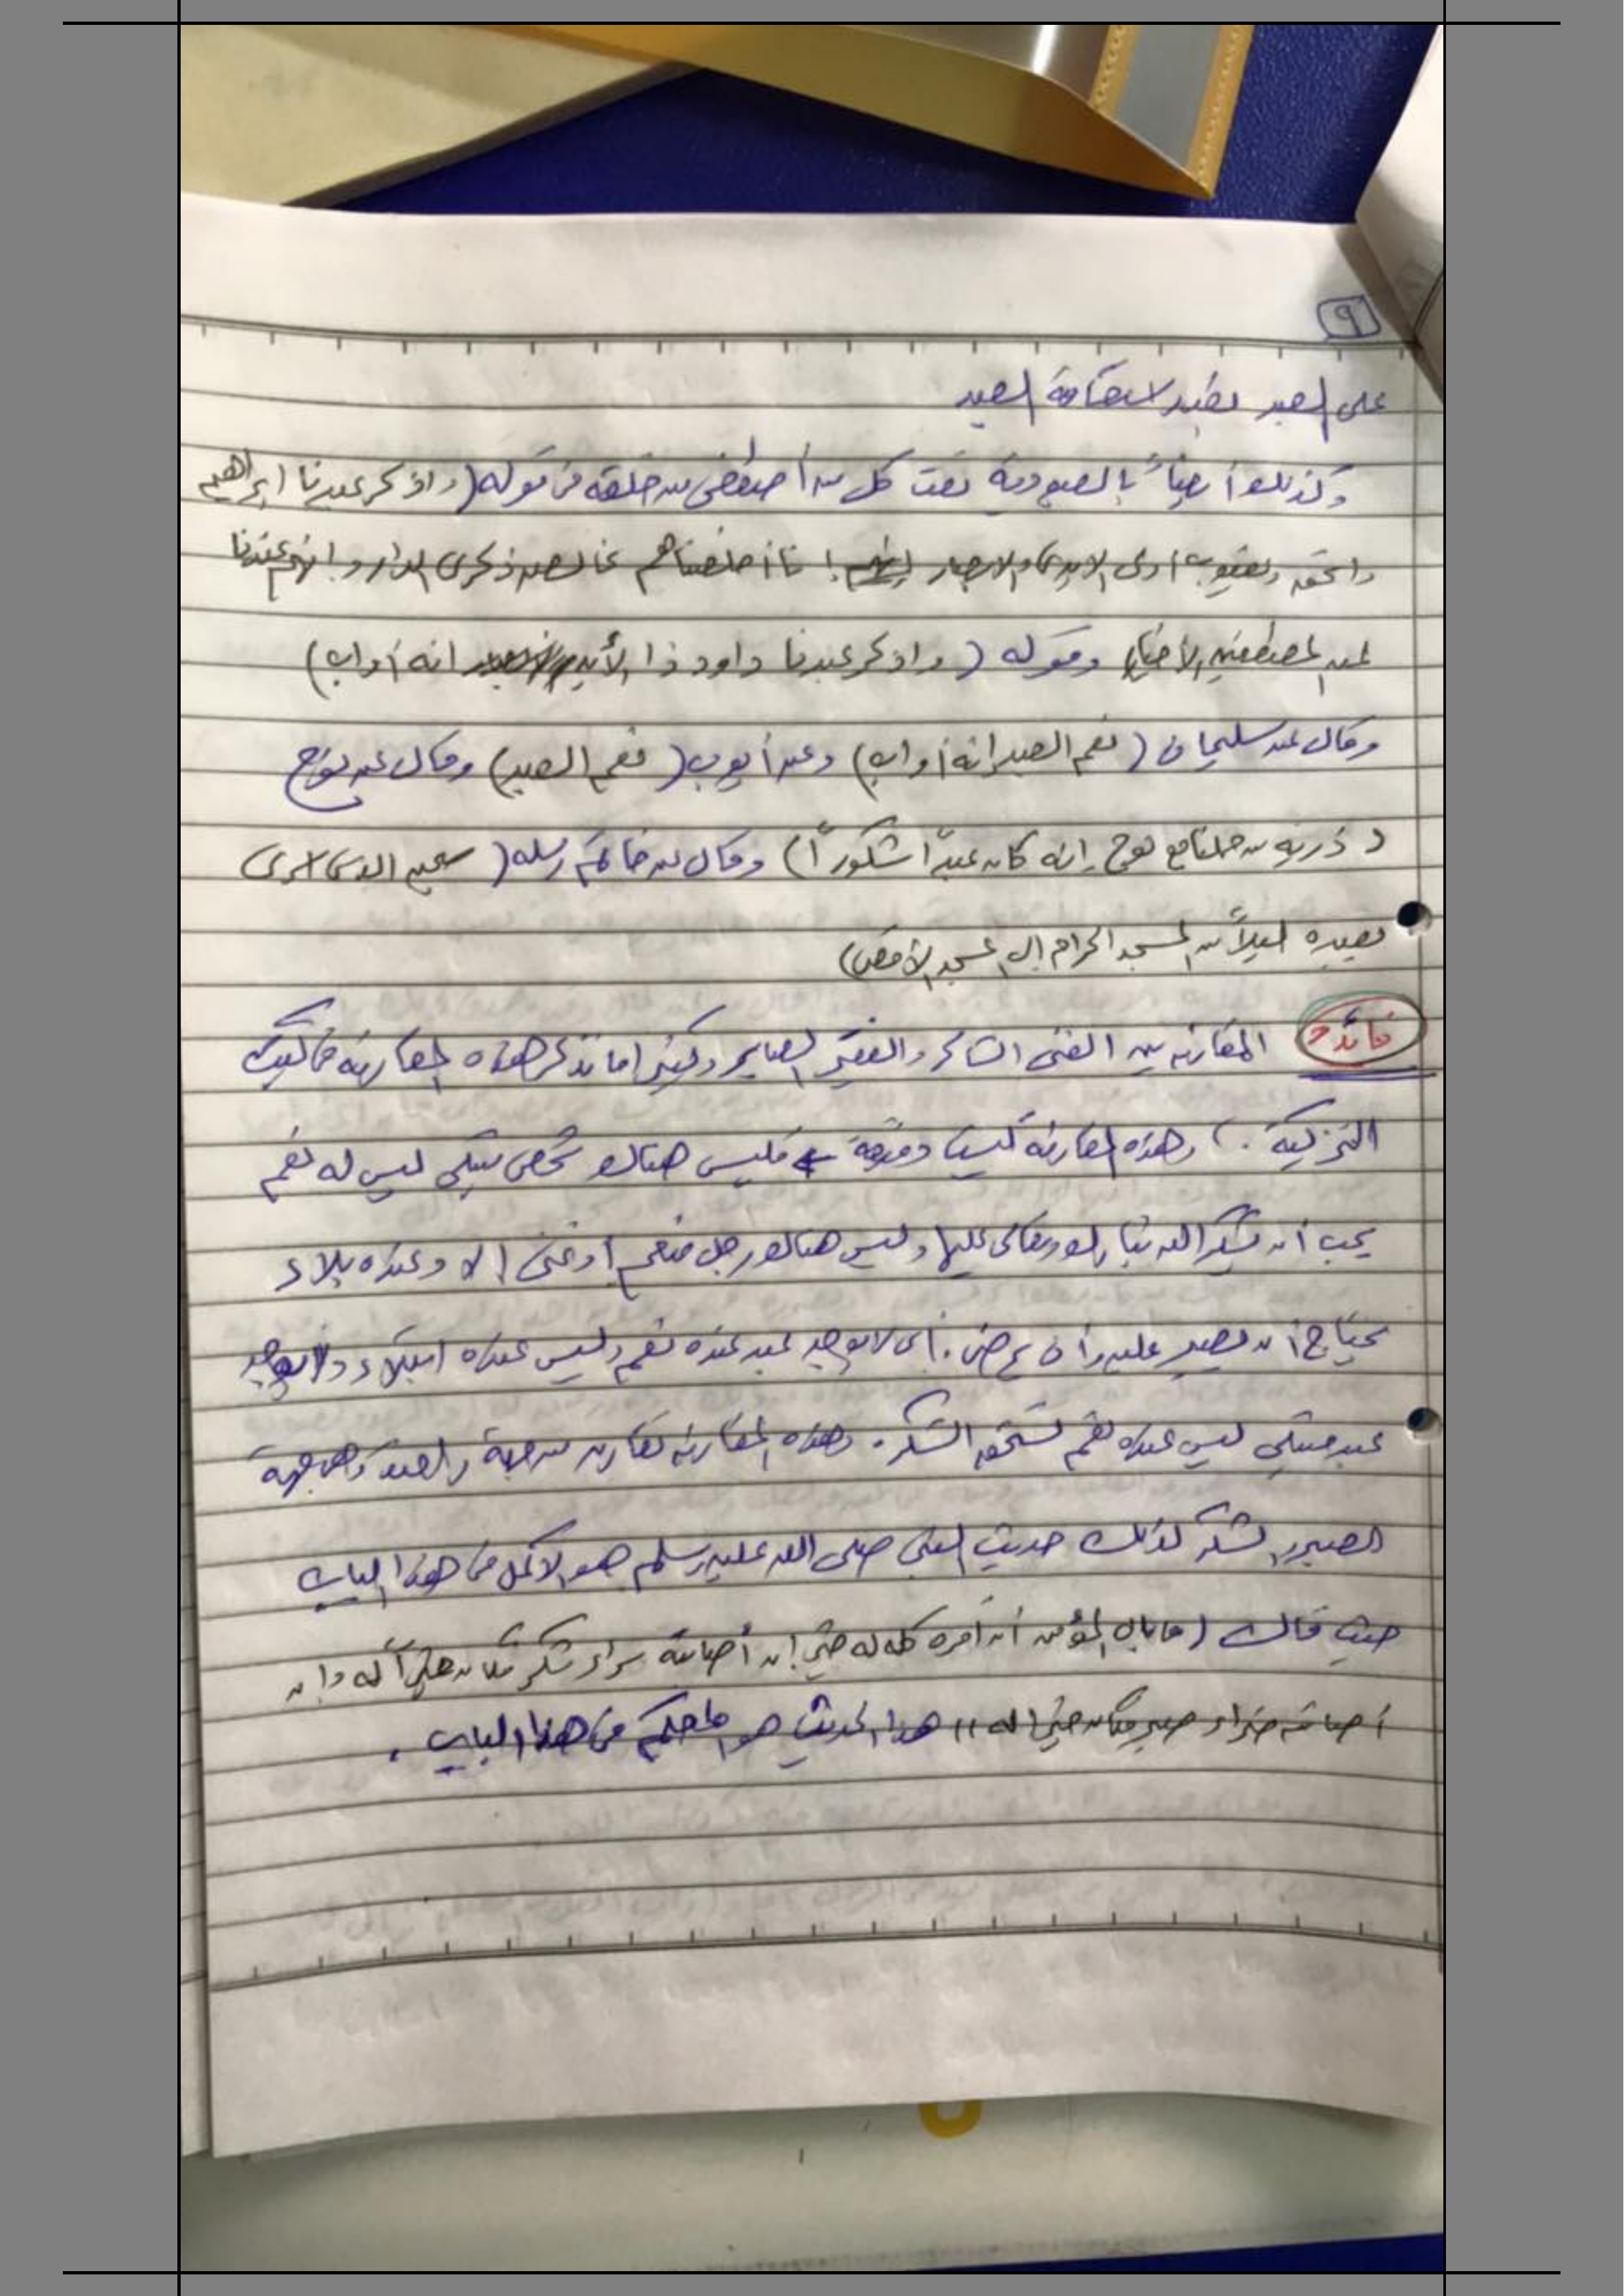 ٩
على العبد بقدر لاستقامة العبد
وكذلك أيضاً بالعبودية نعت كل من أصطفى من خلقه في قوله (واذكر عبدنا ابراهيم
واسحق ويعقوب أولى الايدي والابصار إنا أخلصناهم بخالصه ذكرى الدار وانهم عندنا
لمن المصطفين الأخيار وقوله (واذكر عبدنا داود ذا الأيد انه أواب)
وقال عن سليمان (نعم العبد انه أواب) وعن أيوب (نعم العبد) وقال عن نوح
(ذرية من حملنا مع نوح إنه كان عبداً شكوراً) وقال عن خاتم رسله (سبحن الذي اسرى
بعبده ليلاً من المسجد الحرام إلى المسجد الأقصى)
فائدة المقارنه بين الغنى الشاكر والفقير الصابر وكثيرا ما تذكر هذه المقارنه في كتب
التزكية .) وهذه المقارنه ليست دقيقة فليس هنالك شخص مبتلى ليس له نعم
يجب أن يشكر الله تبارك وتعالى عليها وليس هنالك رجل منعم أو غنى إلا وعنده بلاء
يحتاج أن يصبر عليه وأن يرضى. أى لا يوجد عبد عنده نعم وليس عنده ابتلاء ولا يوجد
عبد مبتلى ليس عنده نعم تستحق الشكر. وهذه المقارنه تقارن من جهة والعبد في جهة
الصبر والشكر لذلك حديث النبي صلى الله عليه وسلم هو الاكمل في هذا الباب
حيث قال (ما بال المؤمن أن أمره كله له خير إن أصابته سراء شكر فكان خيراً له وإن
أصابته ضراء صبر فكان خيرا له)) هذا الحديث هو الحكم في هذا الباب.